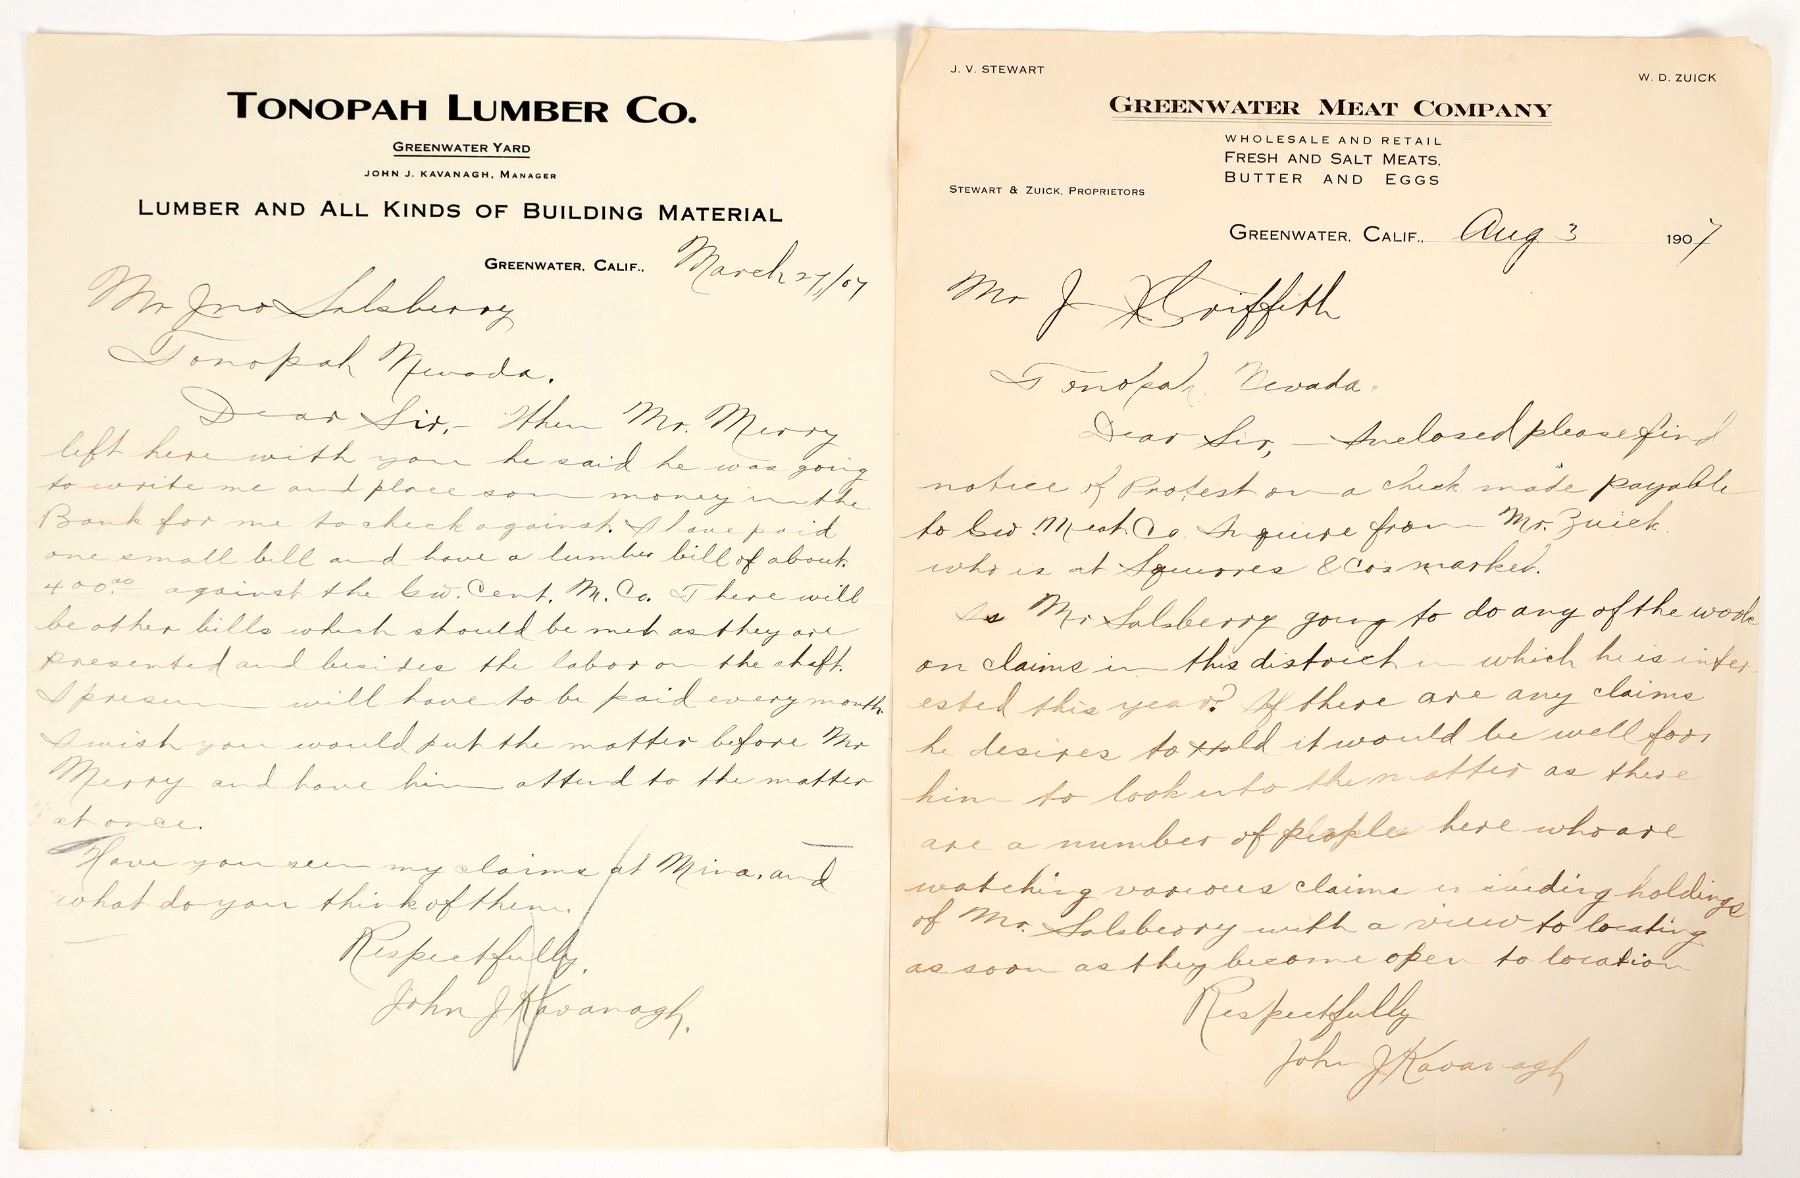 TONOPAH LUMBER CO.
GREENWATER YARD
JOHN J. KAVANAGH, MANAGER
LUMBER AND ALL KINDS OF BUILDING MATERIAL
GREENWATER, CALIF., March 27,/07
Mr Jno Salsberry
Tonopah Nevada.
Dear Sir,- When Mr. Merry
left here with you he said he was going
to write me and place some money in the
Bank for me to check against. I have paid
one small bill and have a lumber bill of about
400.00 against the Gw. Cent. M. Co. There will
be other bills which should be met as they are
presented and besides the labor on the shaft
I presume will have to be paid every month
I wish you would put the matter before Mr
Merry and have him attend to the matter
at once.
Have you seen my claims at Mina, and
what do you think of them.
Respectfully,
John J Kavanagh.
J. V. STEWART
W. D. ZUICK
GREENWATER MEAT COMPANY
WHOLESALE AND RETAIL
FRESH AND SALT MEATS,
BUTTER AND EGGS
STEWART & ZUICK, PROPRIETORS
GREENWATER, CALIF., Aug 3 1907
Mr J Griffith
Tonopah, Nevada.
Dear Sir, - Inclosed please find
notice of Protest on a check made payable
to Gw. Meat Co. Inquire from Mr. Zuick
who is at Squires & Cos market.
Is Mr Salsberry going to do any of the work
on claims in this district in which he is inter-
ested this year? If there are any claims
he desires to hold it would be well for
him to look into the matter as there
are a number of people here who are
watching various claims including holdings
of Mr. Salsberry with a view to locating
as soon as they become open to location
Respectfully
John J Kavanagh